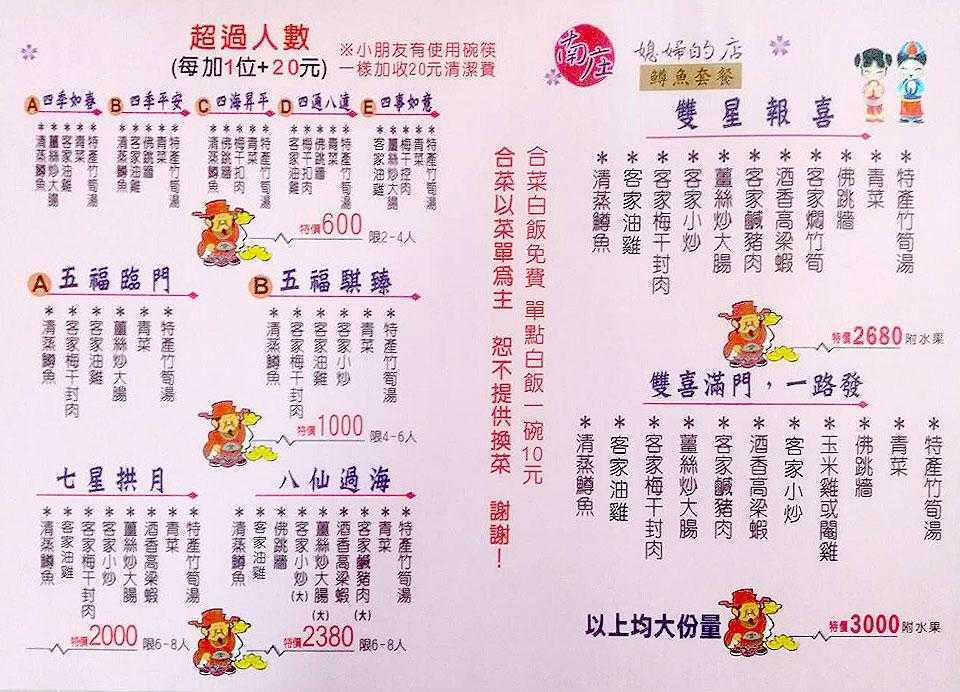 超過人數
(每加1位+20元)
※小朋友有使用碗筷
一樣加收20元清潔費
A 四季如春
*清蒸鱒魚
*薑絲炒大腸
*客家油雞
*青菜
*特產竹筍湯
B 四季平安
*清蒸鱒魚
*客家油雞
*佛跳牆
*青菜
*特產竹筍湯
C 四海昇平
*清蒸鱒魚
*佛跳牆
*梅干扣肉
*青菜
*特產竹筍湯
D 四通八達
*客家油雞
*梅干扣肉
*佛跳牆
*青菜
*特產竹筍湯
E 四事如意
*客家油雞
*薑絲炒大腸
*梅干控肉
*青菜
*特產竹筍湯
特價600 限2-4人
A 五福臨門
*清蒸鱒魚
*客家梅干封肉
*客家油雞
*薑絲炒大腸
*青菜
*特產竹筍湯
B 五福騏臻
*清蒸鱒魚
*客家梅干封肉
*客家油雞
*客家小炒
*青菜
*特產竹筍湯
特價1000 限4-6人
七星拱月
*清蒸鱒魚
*客家油雞
*客家梅干封肉
*客家小炒
*薑絲炒大腸
*酒香高梁蝦
*青菜
*特產竹筍湯
特價2000 限6-8人
八仙過海
*清蒸鱒魚
*客家油雞
*佛跳牆
*客家小炒(大)
*薑絲炒大腸(大)
*酒香高梁蝦
*客家鹹豬肉(大)
*青菜
*特產竹筍湯
特價2380 限6-8人
合菜白飯免費 單點白飯一碗10元
合菜以菜單為主 恕不提供換菜 謝謝！
南庄
媳婦的店
鱒魚套餐
雙星報喜
*清蒸鱒魚
*客家油雞
*客家梅干封肉
*客家小炒
*薑絲炒大腸
*客家鹹豬肉
*酒香高梁蝦
*客家燜竹筍
*佛跳牆
*青菜
*特產竹筍湯
特價2680附水果
雙喜滿門，一路發
*清蒸鱒魚
*客家油雞
*客家梅干封肉
*薑絲炒大腸
*客家鹹豬肉
*酒香高梁蝦
*客家小炒
*玉米雞或閹雞
*佛跳牆
*青菜
*特產竹筍湯
以上均大份量
特價3000附水果